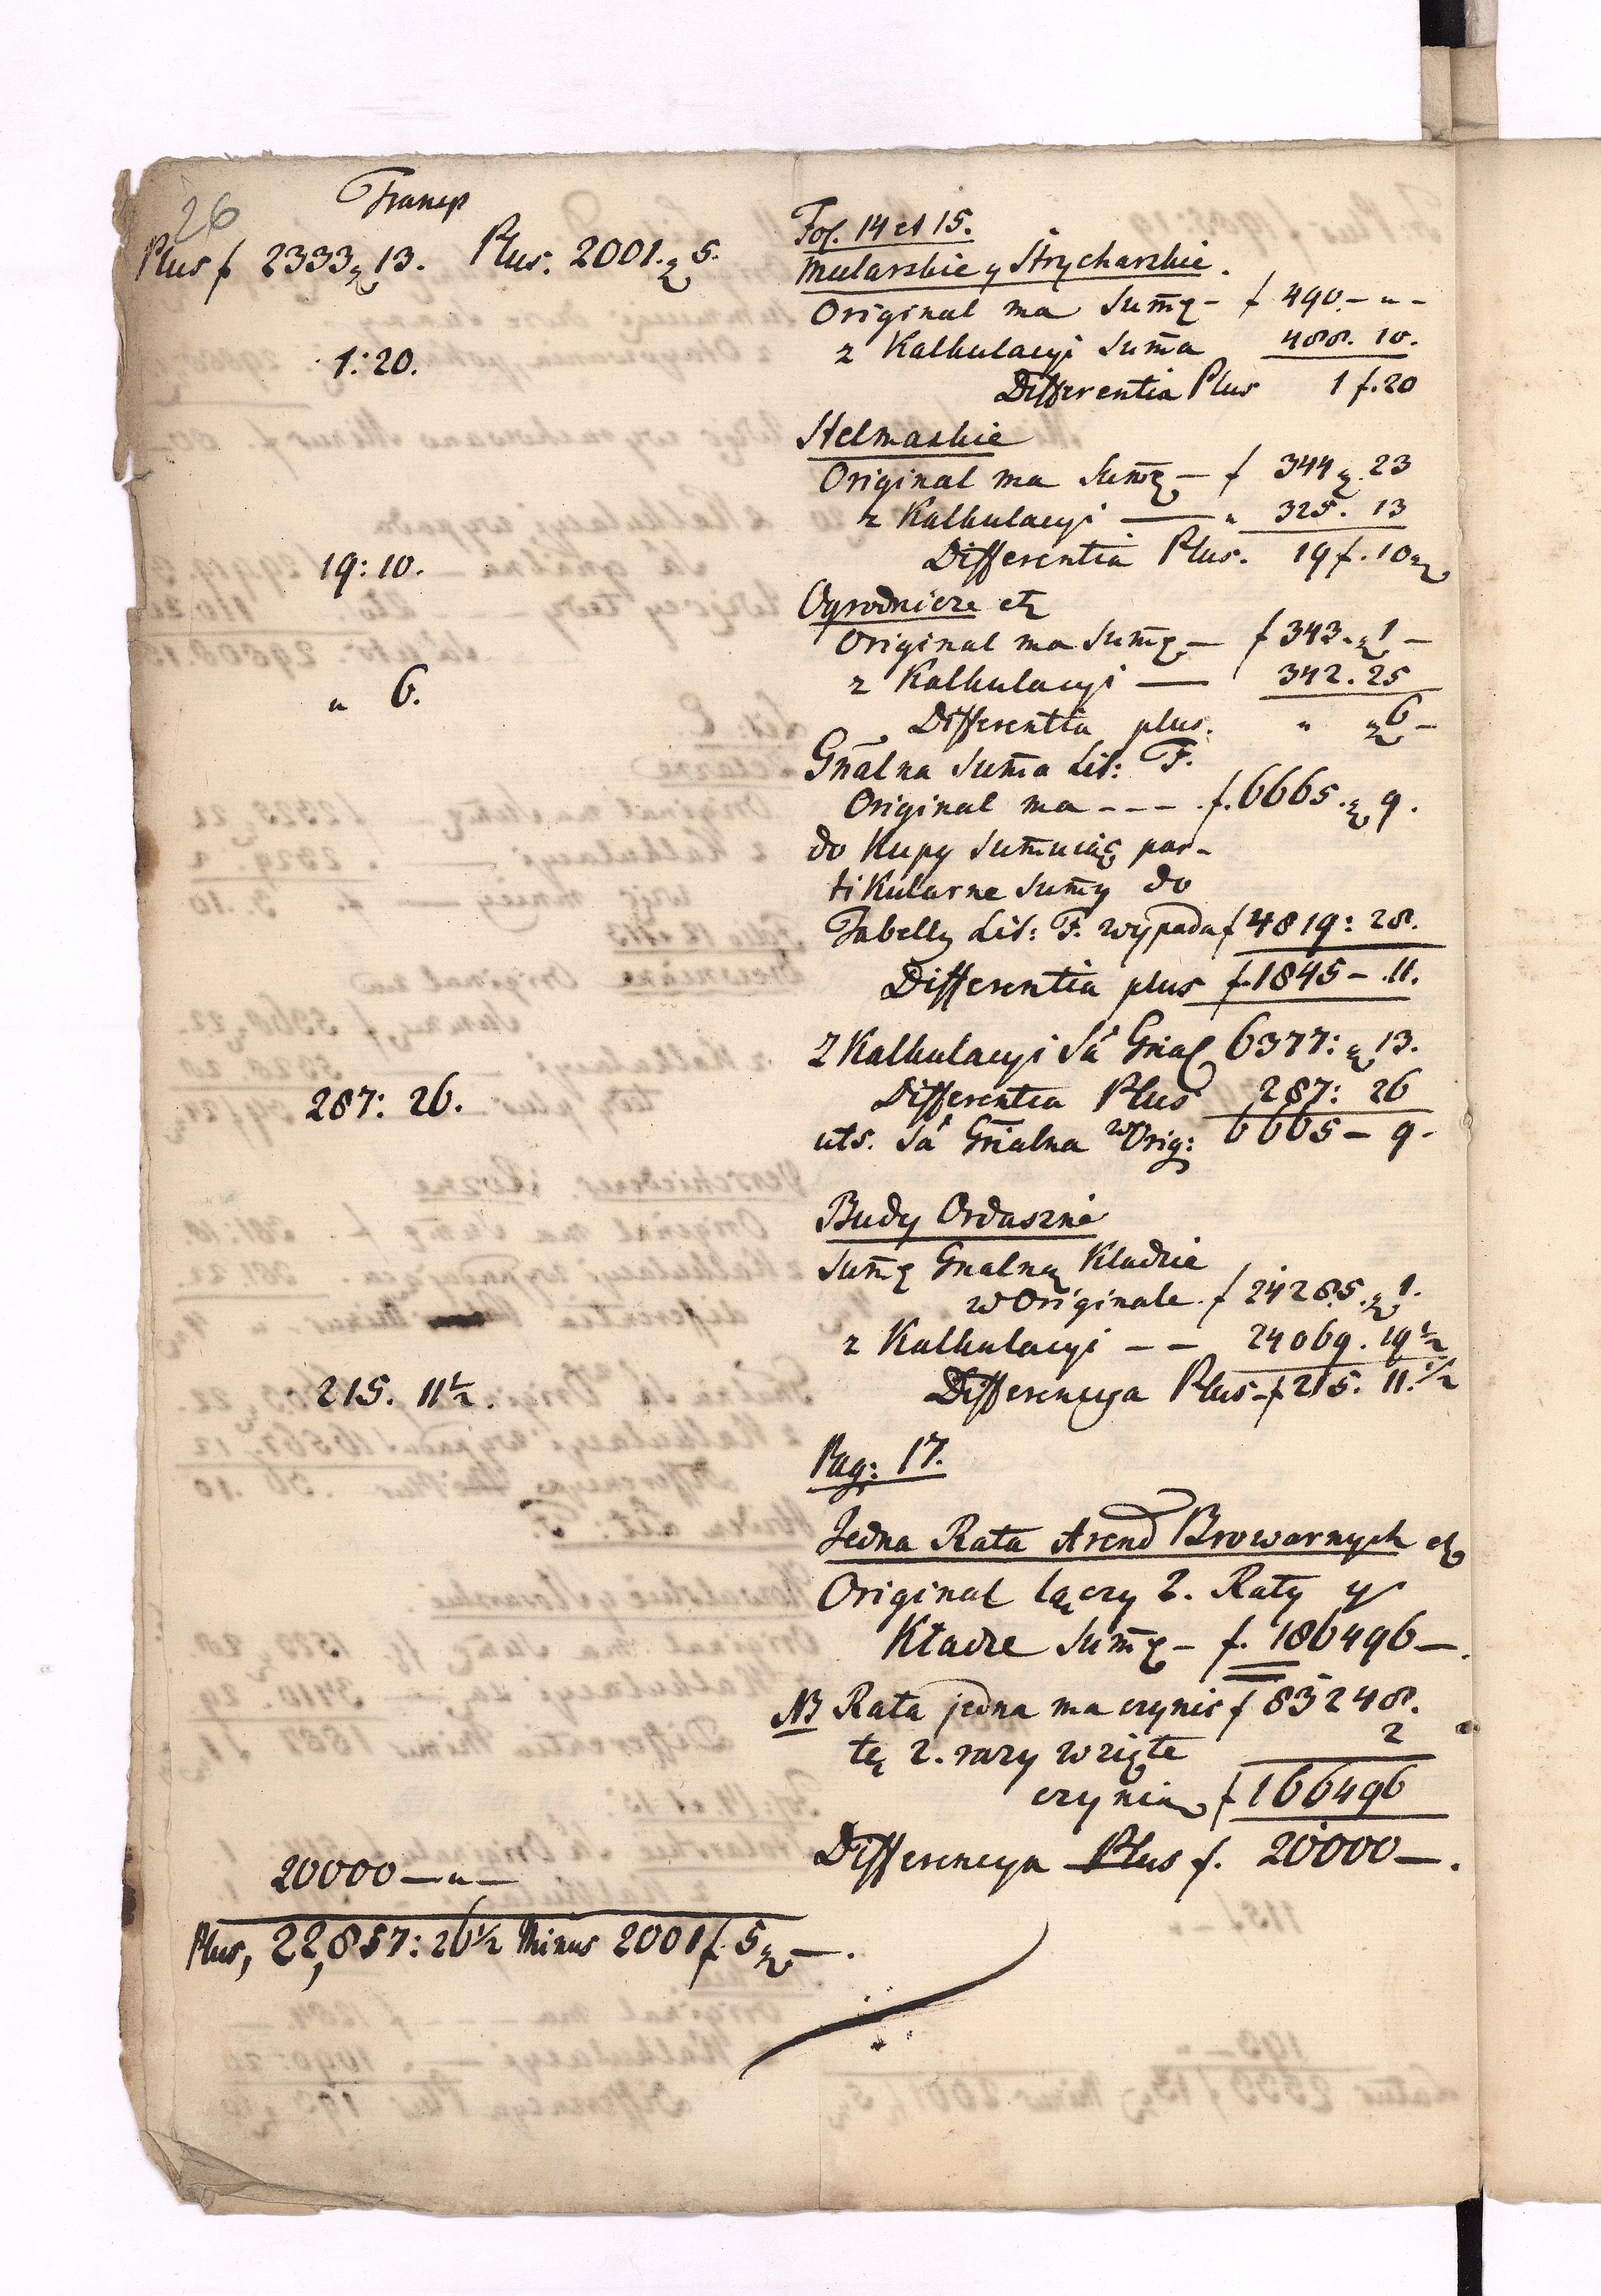 26
Transp
Plus f 2333 g 13. Plus. 2001. g 5.
1:20.
19:10.
" 6.
287: 26.
215. 11½.
20000—"—
Plus, 22,857: 26½ Minus 2001 f 5 g —.
Fol. 14 et 15.
Mularskie y Strycharskie.
Original ma Sum̄ę – f 490.– " –
z Kalkulacyi Sum̄a 488. 10.
Differentia Plus 1 f. 20
Stelmaskie
Original ma Sum̄ę – f 344 g. 23
z Kalkulacyi — " 325. 13
Differentia Plus. 19 f. 10 g
Ogrodnicze etc
Original ma Sum̄ę — f 343. g 1 –
z Kalkulacyi — 342. 25
Differentia plus. " g 6 –
Gnālna Sum̄a Lit: F.
Original ma - - - . f. 6665. g 9.
do Kupy Sum̄uiąc par-
tikularne Sum̄y do
Tabelly Lit: F. wypada f 4819: 28.
Differentia plus f. 1845 – 11.
Z Kalkulacyi Sā Gnal 6377: g 13.
Differentia Plus 287: 26
uts. Sā Gnālna w Orig: 6665 – 9.
Budy Ordaszne
Sum̄ę Gnalną Kładzie
w Originale. f 24285. g 1.
z Kalkulacyi – – 24069. 19½
Differencya Plus – f 215. 11.½
Pag: 17.
Jedna Rata Arend Browarnych etc
Original łączy 2. Raty y
Kładze Sum̄ę – f. 186496 —.
NB Rata jedna ma czynić f 83248.
tę 2. razy wzięte 2
czynią f 166496
Differencya Plus f. 20000 —.